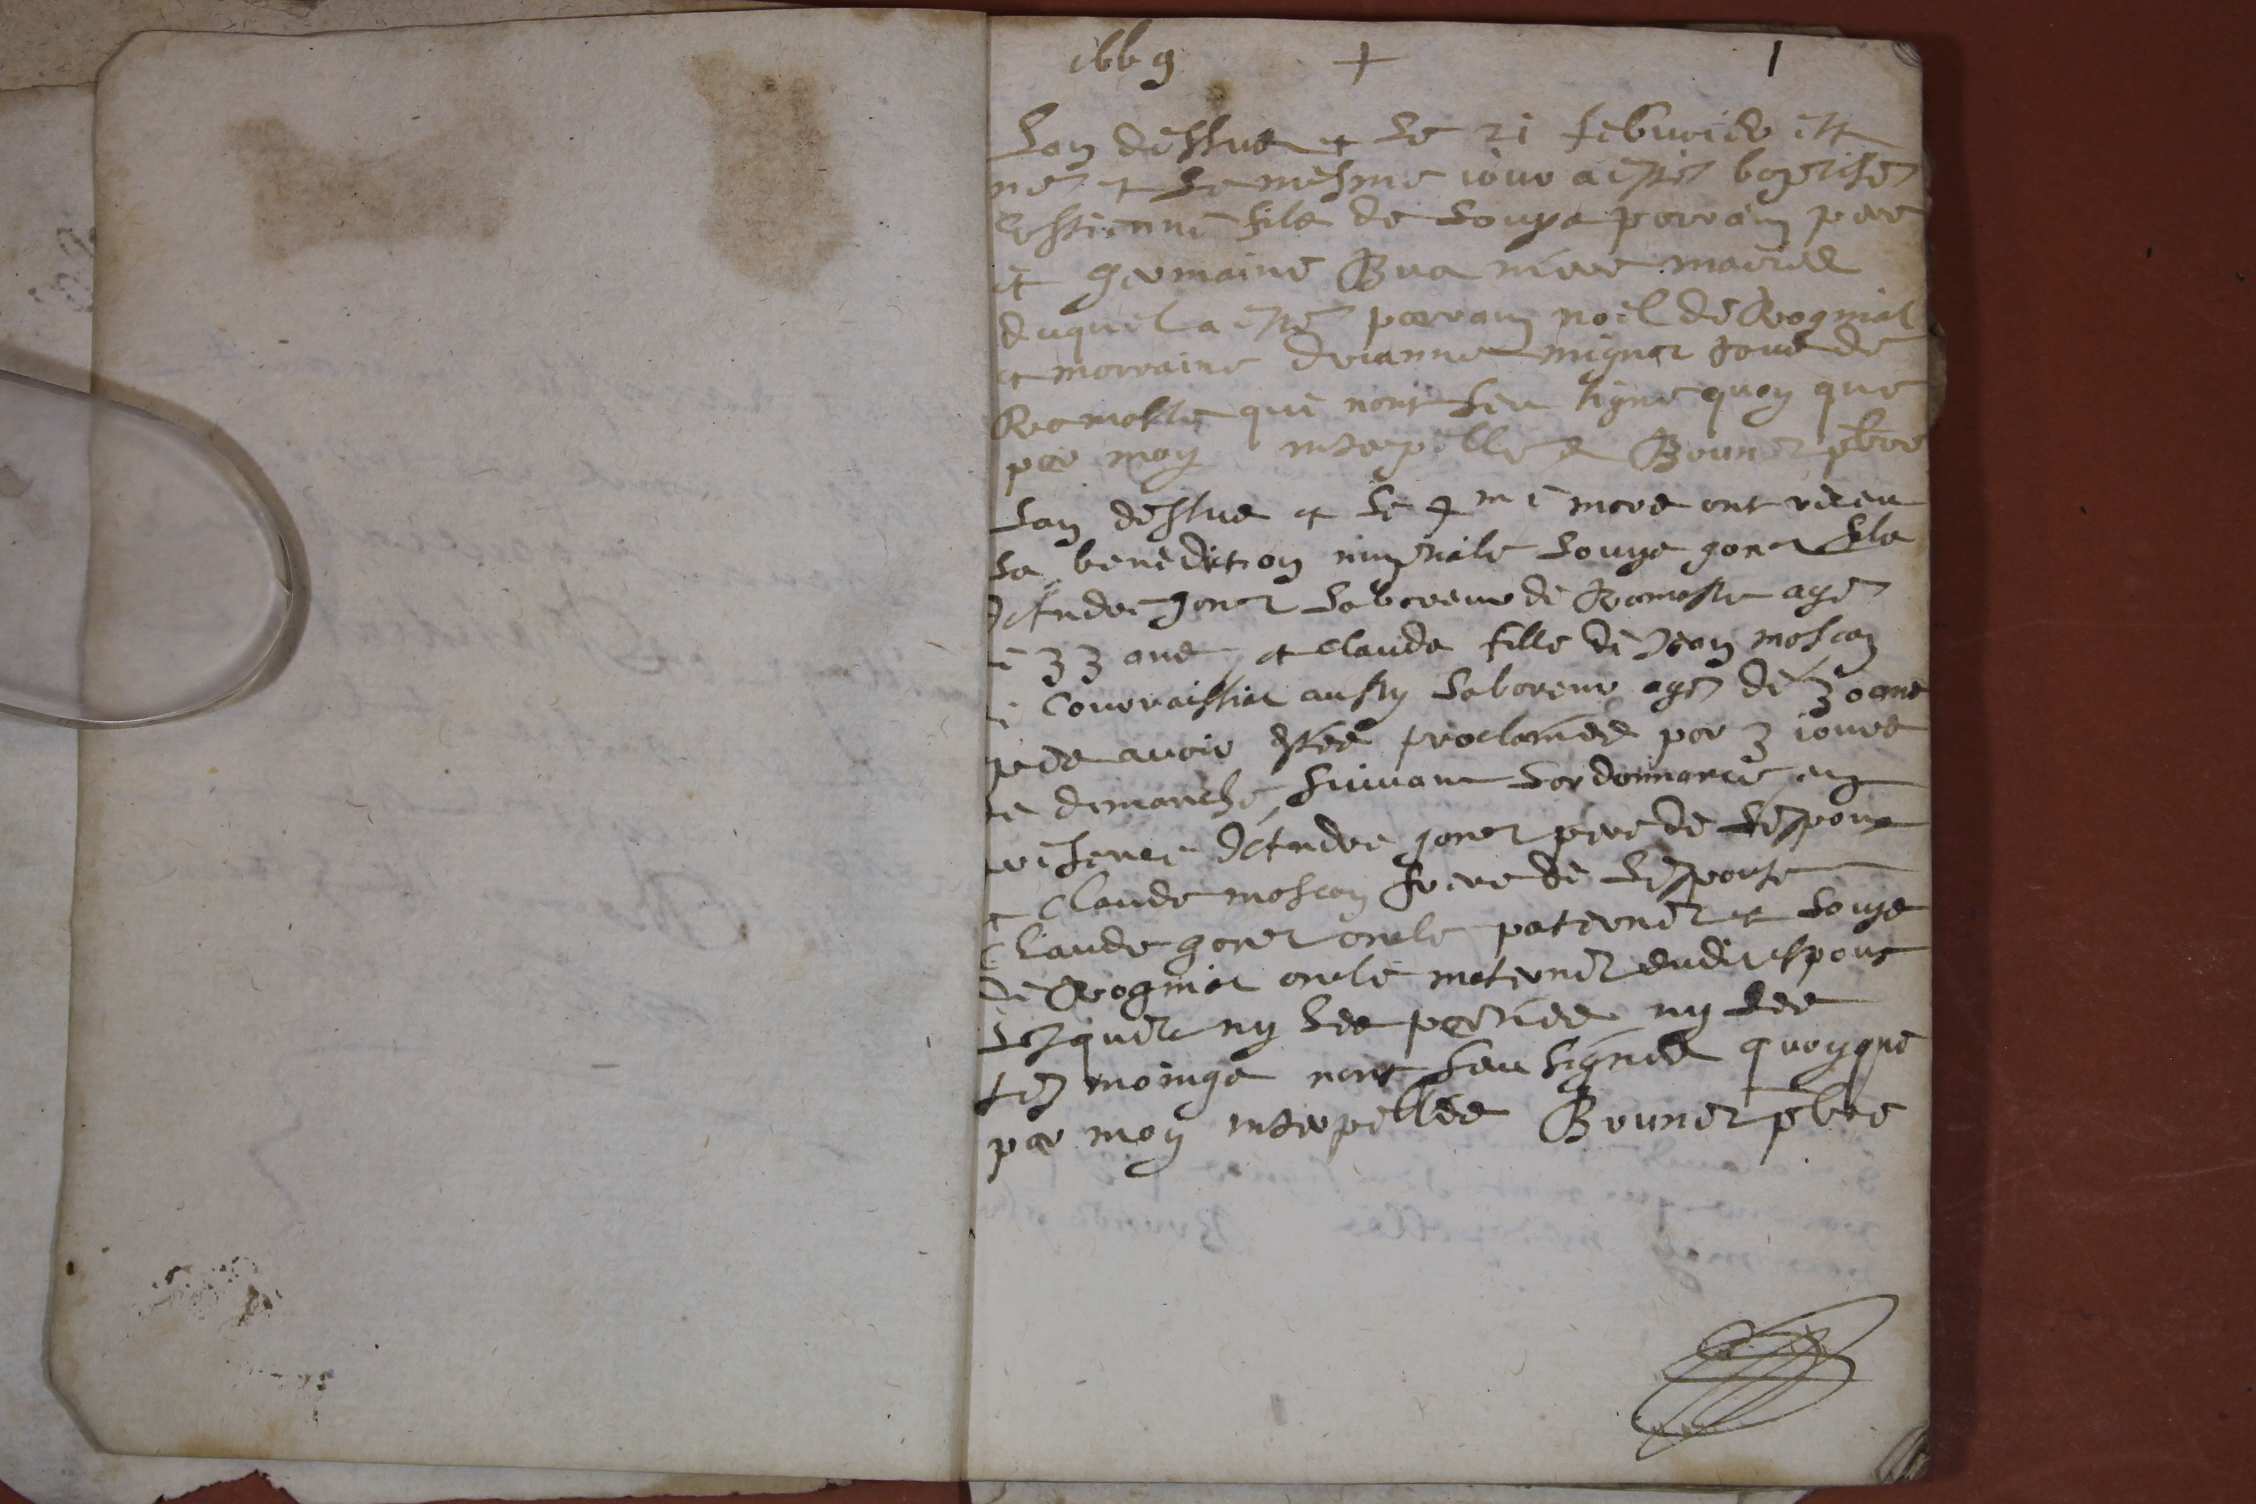 1669 + 1
Lan dessus et le 21 febvrier est
né et le mesme iour a esté baptisé
Estienne fils de Louys perrain pere
et germaine Bua mere mariés
duquel a esté parrain noel de Rogniat
et marraine drianne mignot tous de
Ramasse que nont seu signe quoy que
par moy interpelles Brunet pbre
Lan dessus et le 4me mars ont receu
la benediction nuptiale Louys gonet fils
d'Andre gonet laboreur de Ramasse agé
e 33 ans et Clauda fille de Jean moscon
Courraissiat aussy laboreur agé de 30 ans
avoir estés proclamés par 3 iours
de dimanche suivant lordonnance en
presence d'Andre gonet pere de lespoux
et Claude moscon frere de lespouse
Claude gonet oncle paternel et Louys
de Rogniat oncle maternel dudit espoux
lesquels ny les parties ny les
tesmoings nont seu signés quoyque
par moy interpellés Brunet pbre